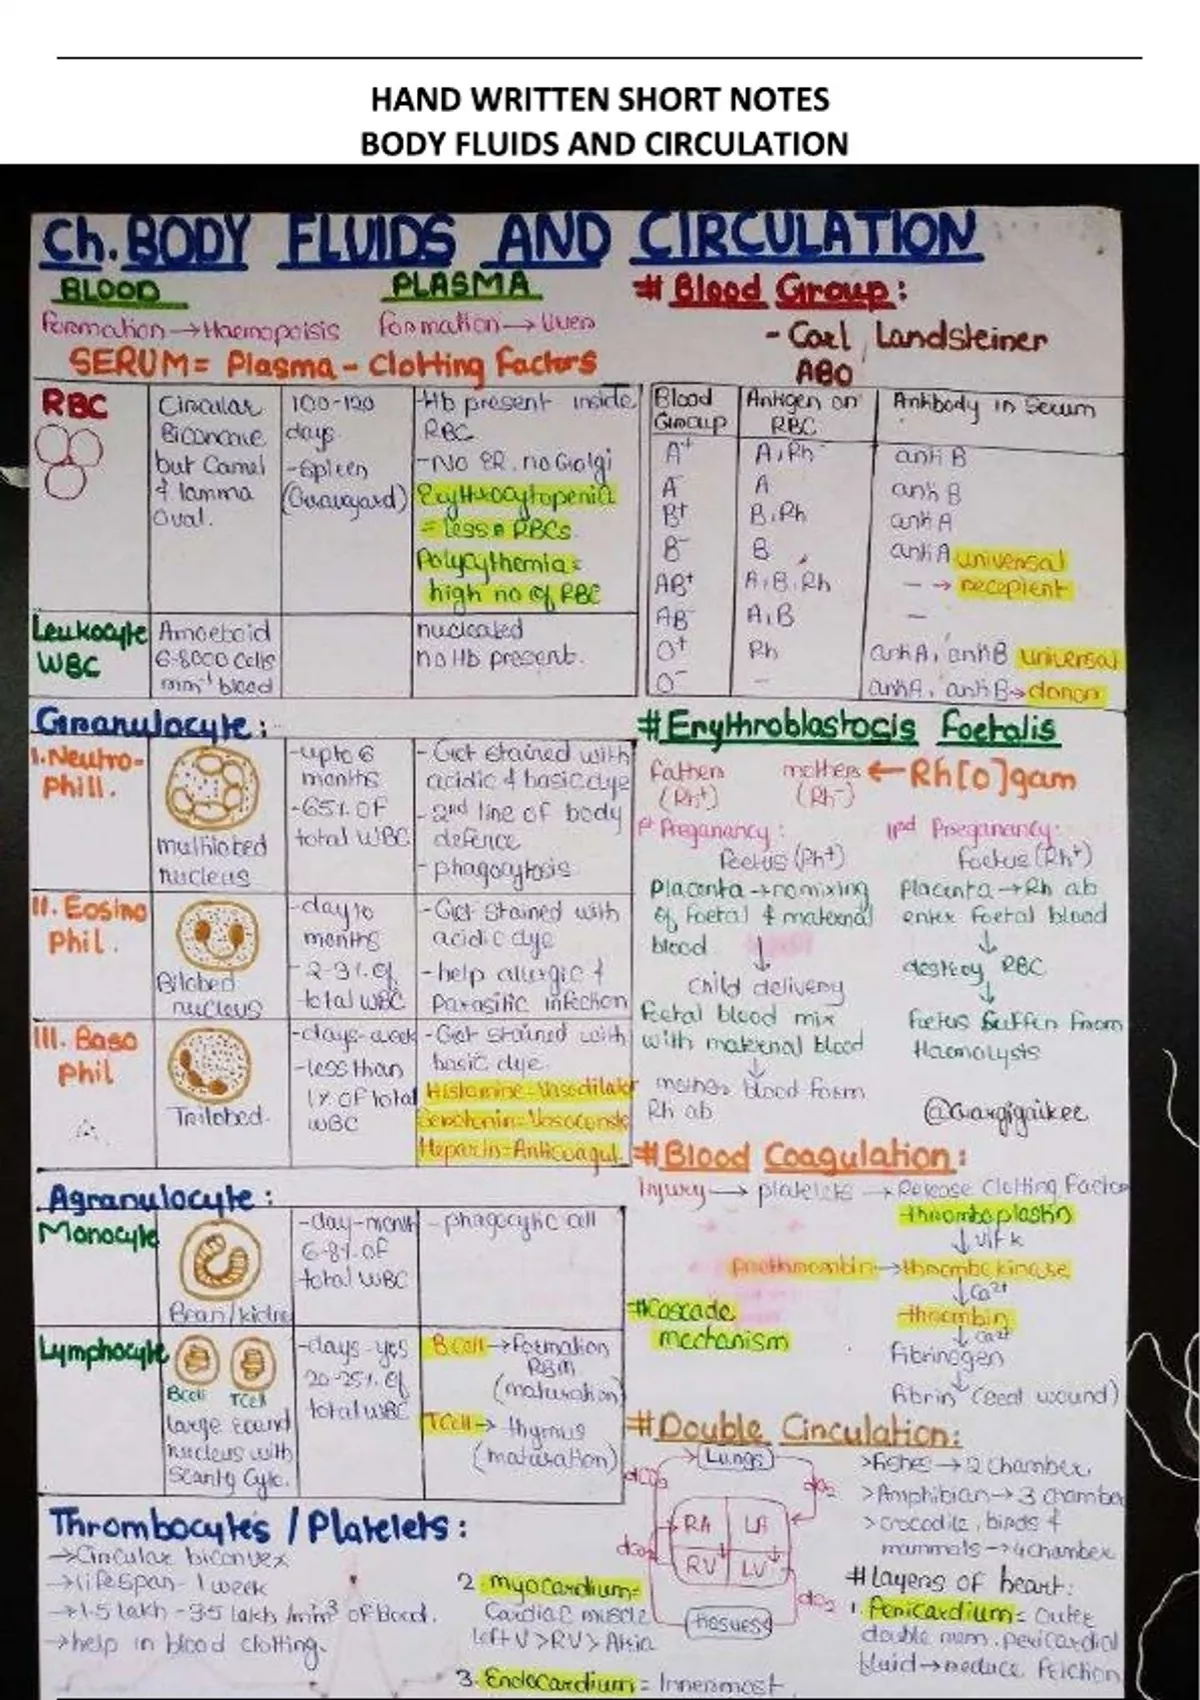 HAND WRITTEN SHORT NOTES
BODY FLUIDS AND CIRCULATION
Ch. BODY FLUIDS AND CIRCULATION
BLOOD
Formation → Haemopoisis
PLASMA
formation → liver
SERUM = Plasma - Clotting Factors
RBC
Circular
Biconcave
but Camel
& lamma
Oval.
100-120
days
-Spleen
(Graveyard)
-Hb present inside
RBC
-No ER, no Golgi
Erythrocytopenia
= less RBCs.
Polycythemia =
high no of RBC
Leukocyte
WBC
Amoeboid
6-8000 cells
mm⁻¹ blood
nucleated
no Hb present.
Granulocyte:
I. Neutro-
Phill.
multilobed
nucleus
-upto 6
months
-65% OF
total WBC
- Get stained with
acidic & basic dye
- 2nd line of body
defence
- phagocytosis
II. Eosino
Phil.
Bilobed
nucleus
-day to
months
- 2-3% of
total WBC
-Get stained with
acidic dye
-help allergic &
Parasitic infection
III. Baso
Phil
Trilobed.
-days-week
-less than
1% of total
WBC
-Get stained with
basic dye.
Histamine-Vasodilator
Serotonin-Vasoconst
Heparin=Anticoagul.
Agranulocyte:
Monocyte
Bean/kidne
-day-month
6-8% OF
total WBC
-phagocytic cell
Lymphocyte
Bcell TCell
large round
nucleus with
Scanty Cyte.
-days-yrs
20-25% of
total WBC
B Cell → Formation
RBM
(maturation)
T Cell → thymus
(maturation)
Thrombocytes / Platelets:
→ Circular biconvex
→ lifespan - 1 week
→ 1.5 lakh - 3.5 lakh /mm³ of blood.
→ help in blood clotting.
# Blood Group:
- Carl Landsteiner
ABO
Blood
Group
Antigen on
RBC
Antibody in Serum
A⁺ A, Rh anti B
A⁻ A anti B
B⁺ B, Rh anti A
B⁻ B anti A universal
AB⁺ A, B, Rh - → recepient
AB⁻ A, B -
O⁺ Rh anti A, anti B universal
O⁻ - anti A, anti B → donor
# Erythroblastocis Foetalis
fathers
(Rh⁺)
mothers ← Rh[o]gam
(Rh⁻)
Ist Preganancy:
foetus (Rh⁺)
Placenta → no mixing
of Foetal & maternal
blood
↓
child delivery
Foetal blood mix
with maternal blood
↓
mother blood form
Rh ab
IInd Preganancy:
foetus (Rh⁺)
Placenta → Rh ab
enter foetal blood
↓
destroy RBC
↓
foetus suffer from
Haemolysts
@Gargigaikee
# Blood Coagulation:
Injury → platelets → Release Clotting Factor
thromboplastin
↓ vit K
prothrombin → thrombokinase
↓ Ca²⁺
thrombin
↓ Ca²⁺
Fibrinogen
↓
fibrin (seal wound)
# Cascade
mechanism
# Double Circulation:
Lungs
dCO₂
dO₂
RA LA
RV LV
dCO₂
dO₂
tissues
> fishes → 2 chamber
> Amphibian → 3 chamber
> crocodile, birds &
mammals → 4 chamber
# Layers of heart:
1. Pericardium = outer
double mem. pericardial
fluid → reduce friction
2. myocardium =
Cardiac muscle
left V > RV > Atria
3. Endocardium = Innermost